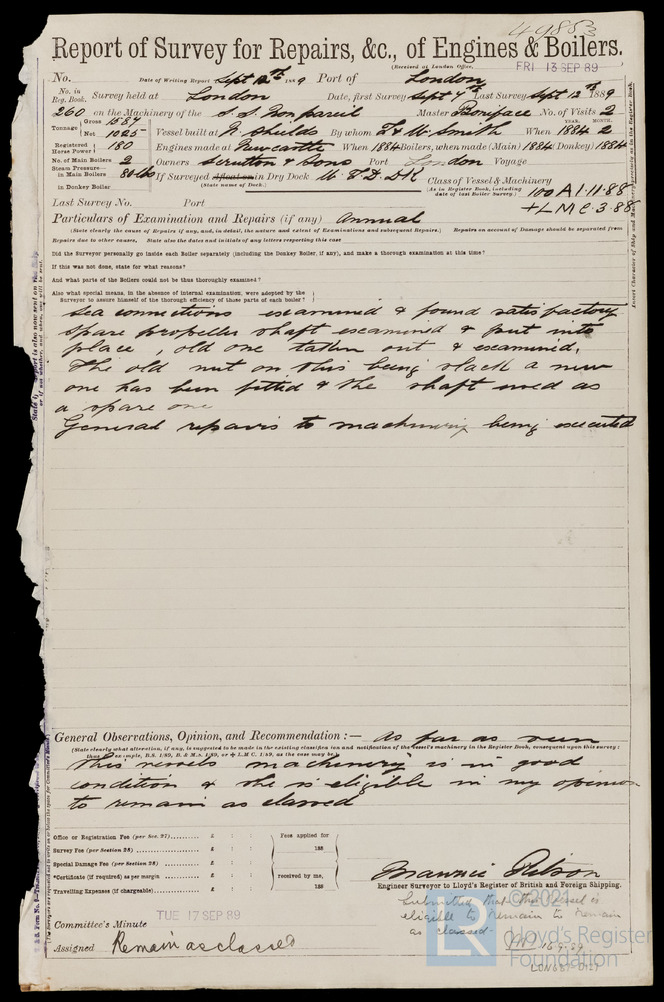 49853
Report of Survey for Repairs, &c., of Engines & Boilers.
(Received at London Office, FRI 13 SEP 89
No. Date of Writing Report Sept 12th 1889 Port of London
No. in Reg. Book. Survey held at London Date, first Survey Sept 7th Last Survey Sept 12th 1889
260 on the Machinery of the S.S. Nonpareil Master Boniface No. of Visits 2
Tonnage Gross 1587 Net 1025 Vessel built at N. Shields By whom T & W. Smith When YEAR. 1884 MONTH. 2
Registered Horse Power 180 Engines made at Newcastle When 1884 Boilers, when made (Main) 1884 Donkey 1884
No. of Main Boilers 2 Owners Scrutton & Sons Port London Voyage
Steam Pressure in Main Boilers 80 lbs If Surveyed Afloat or in Dry Dock (State name of Dock.) Class of Vessel & Machinery (As in Register Book, including date of last Boiler Survey.) 100 A1. 11.88
in Donkey Boiler
+LMC. 3.88
Last Survey No. Port
Particulars of Examination and Repairs (if any) Annual
(State clearly the cause of Repairs if any, and, in detail, the nature and extent of Examinations and subsequent Repairs.) Repairs on account of Damage should be separated from
Repairs due to other causes, State also the dates and initials of any letters respecting this case
Did the Surveyor personally go inside each Boiler separately (including the Donkey Boiler, if any), and make a thorough examination at this time?
If this was not done, state for what reasons?
And what parts of the Boilers could not be thus thoroughly examined?
Also what special means, in the absence of internal examination, were adopted by the
Surveyor to assure himself of the thorough efficiency of those parts of each boiler?
Sea connections examined & found satisfactory
Spare propeller shaft examined & put into
place, old one taken out & examined.
The old nut on this being slack a new
one has been fitted & the shaft used as
a spare one
General repairs to machinery being executed
General Observations, Opinion, and Recommendation :— As far as seen
(State clearly what alteration, if any, is suggested to be made in the existing classification and notification of the vessel's machinery in the Register Book, consequent upon this survey:
this vessels machinery is in good
condition & she is eligible in my opinion
to remain as classed
Office or Registration Fee (per Sec. 27) £ : : Fees applied for
Survey Fee (per Section 28) £ : : 188
Special Damage Fee (per Section 28) £ : :
*Certificate (if required) as per margin £ : : received by me,
Travelling Expenses (if chargeable) £ : : 188
Engineer Surveyor to Lloyd's Register of British and Foreign Shipping.
Submitted that this vessel is
eligible to remain to remain
as classed.
16.9.89
TUE 17 SEP 89
Committee's Minute
Assigned Remain as classed
© 2021
LR
Lloyd's Register
Foundation